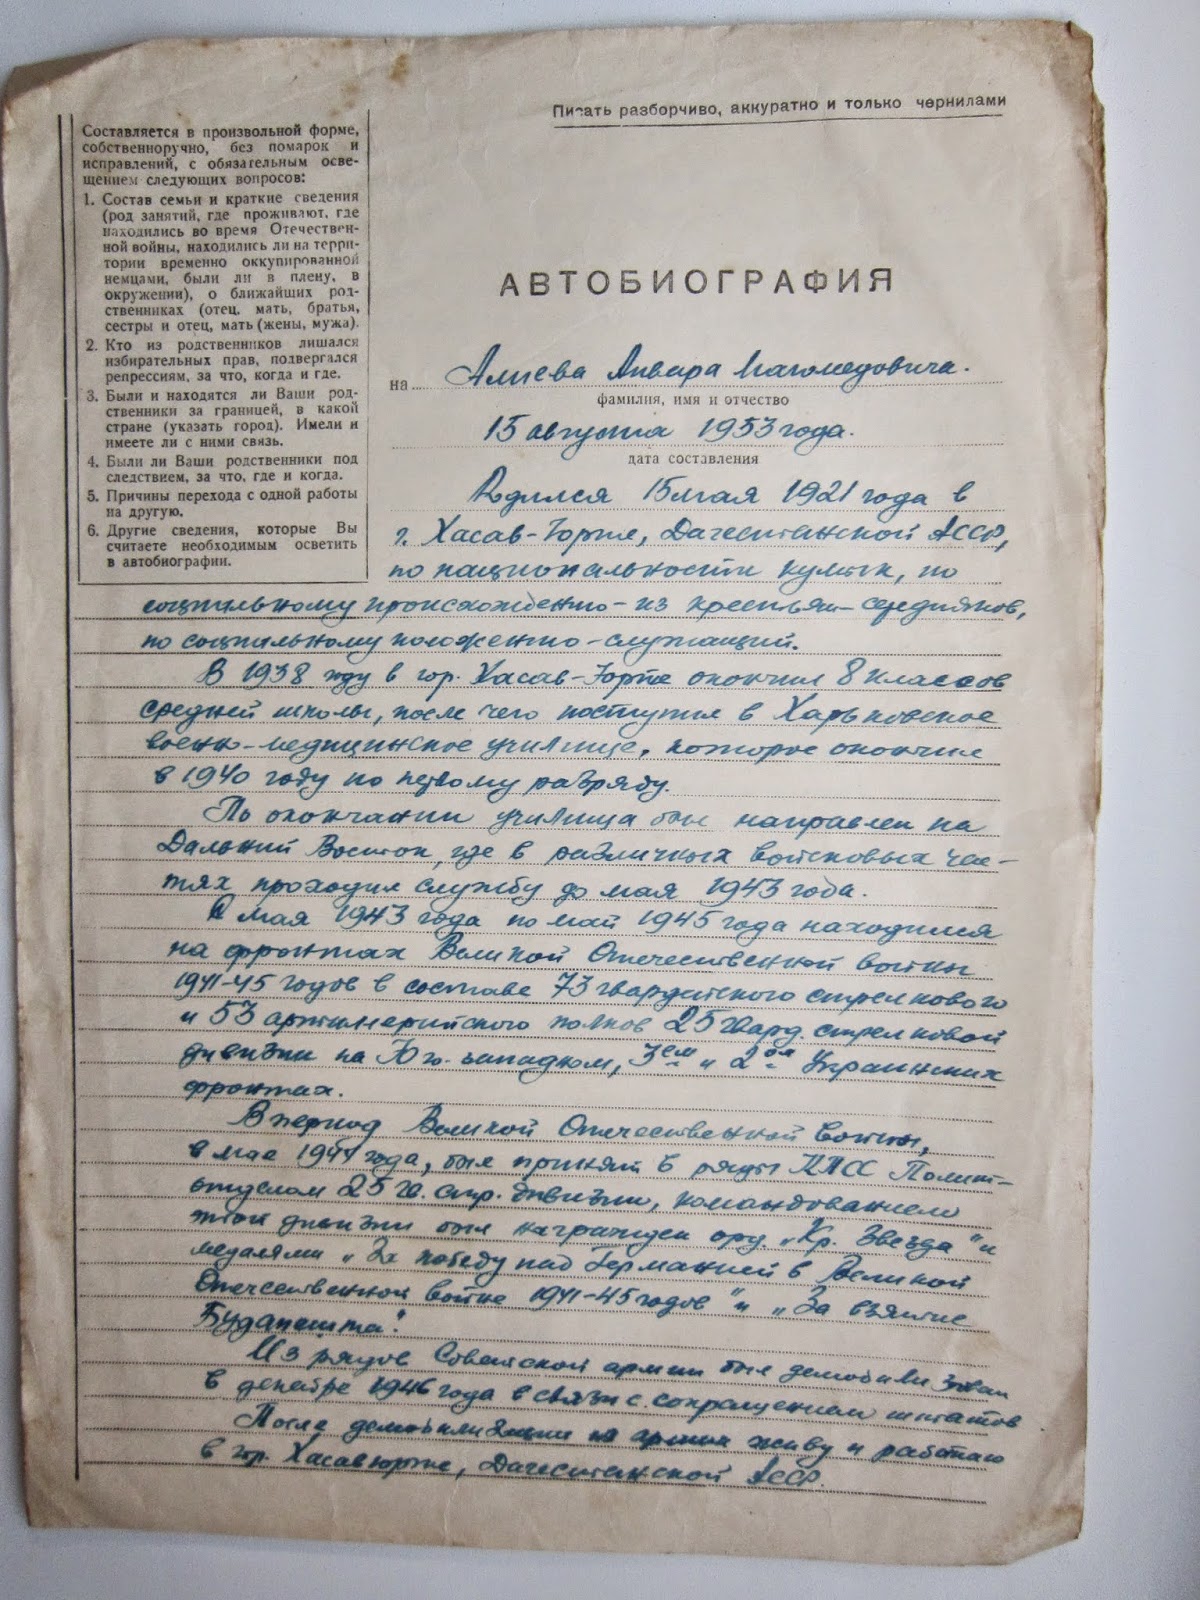 Писать разборчиво, аккуратно и только чернилами
Составляется в произвольной форме,
собственноручно, без помарок и
исправлений, с обязательным осве-
щением следующих вопросов:
1. Состав семьи и краткие сведения
(род занятий, где проживают, где
находились во время Отечествен-
ной войны, находились ли на терри-
тории временно оккупированной
немцами, были ли в плену, в
окружении), о ближайших род-
ственниках (отец, мать, братья,
сестры и отец, мать (жены, мужа).
2. Кто из родственников лишался
избирательных прав, подвергался
репрессиям, за что, когда и где.
3. Были и находятся ли Ваши род-
ственники за границей, в какой
стране (указать город). Имели и
имеете ли с ними связь.
4. Были ли Ваши родственники под
следствием, за что, где и когда.
5. Причины перехода с одной работы
на другую.
6. Другие сведения, которые Вы
считаете необходимым осветить
в автобиографии.
АВТОБИОГРАФИЯ
на Алиева Анвара Магомедовича.
фамилия, имя и отчество
15 августа 1953 года.
дата составления
Родился 15 мая 1921 года в
г. Хасав-Юрте, Дагестанской АССР,
по национальности кумык, по
социльному происхождению - из крестьян-середняков,
по социльному положению - служащий.
В 1938 году в гор. Хасав-Юрте окончил 8 классов
средней школы, после чего поступил в Харьковское
военно-медицинское училище, которое окончил
в 1940 году по первому разряду.
По окончании училища был направлен на
Дальний Восток, где в различных войсковых час-
тях проходил службу до мая 1943 года.
С мая 1943 года по май 1945 года находился
на фронтах Великой Отечественной войны
1941-45 годов в составе 73 гвардейского стрелкового
и 53 артиллерийского полков 25 гвард. стрелковой
дивизии на Юго-западном, 3ем и 2ом Украинских
фронтах.
В период Великой Отечественной войны,
в мае 1944 года, был принят в ряды КПСС Полит-
отделом 25 гв. стр. дивизии, командованием
этой дивизии был награжден орд. „Кр. Звезда" и
медалями „За победу над Германией в Великой
Отечественной войне 1941-45 годов" и „За взятие
Будапешта".
Из рядов Советской армии был демобилизован
в декабре 1946 года в связи с сокращением штатов
После демобилизации из армии живу и работаю
в гор. Хасавюрте, Дагестанской АССР.